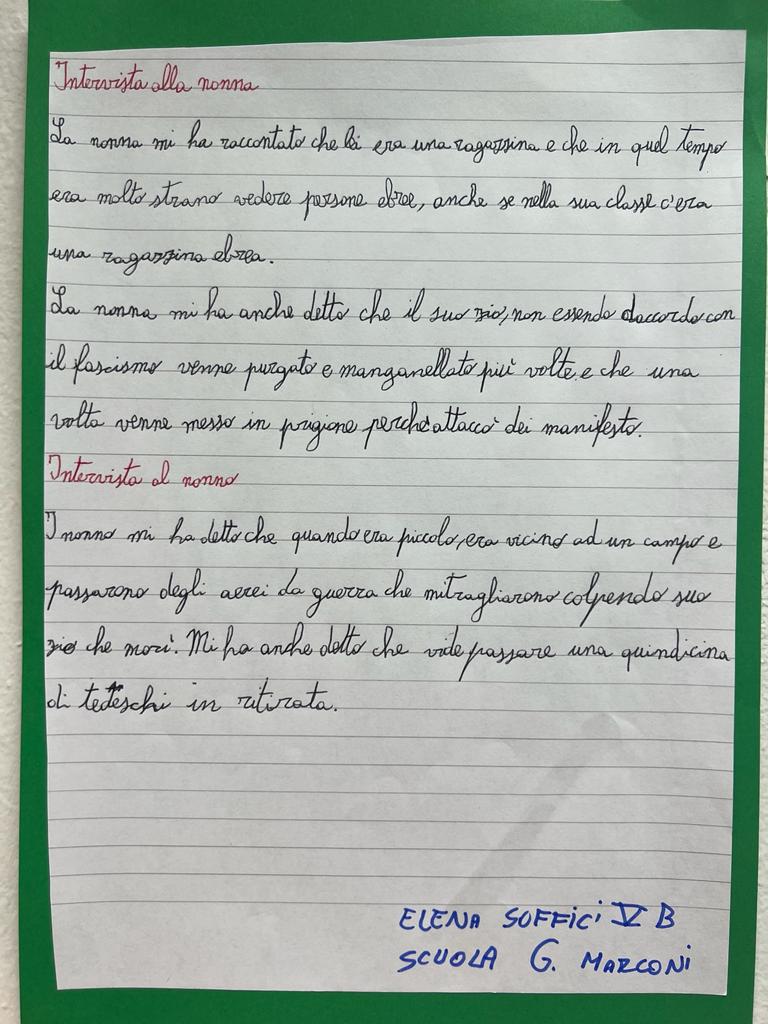 Intervista alla nonna
La nonna mi ha raccontato che lei era una ragazzina e che in quel tempo
era molto strano vedere persone ebree, anche se nella sua classe c'era
una ragazzina ebrea.
La nonna mi ha anche detto che il suo zio, non essendo daccordo con
il fascismo venne purgato e manganellato più volte e che una
volta venne messo in prigione perché attaccò dei manifesto.
Intervista al nonno
I nonno mi ha detto che quando era piccolo, era vicino ad un campo e
passarono degli aerei da guerra che mitragliarono colpendo suo
zio che morì. Mi ha anche detto che vide passare una quindicina
di tedeschi in ritirata.
ELENA SOFFICI V B
SCUOLA G. MARCONI